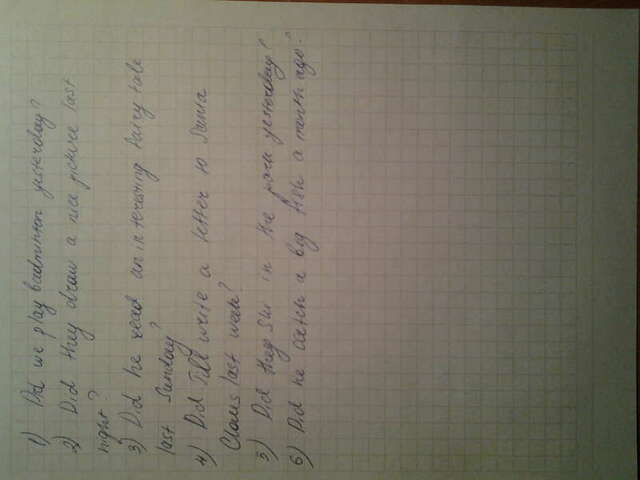 1) Did we play badminton yesterday?
2) Did they draw a nice picture last
night?
3) Did he read an interesting fairy tale
last Sunday?
4) Did Jill write a letter to Santa
Claus last week?
5) Did they ski in the park yesterday?
6) Did he catch a big fish a month ago?